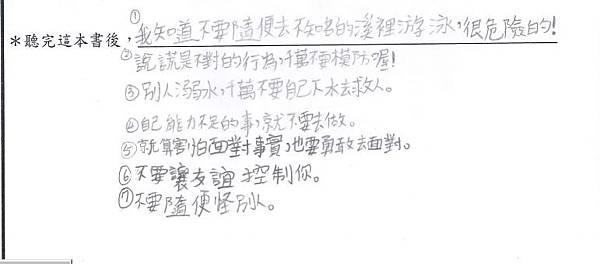 *聽完這本書後,①我知道不要隨便去不知名的溪裡游泳,很危險的!
②說謊是不對的行為,千萬不要模仿喔!
③別人溺水,千萬不要自己下水去救人。
④自己能力不足的事,就不要去做。
⑤就算害怕面對事實,也要勇敢去面對。
⑥不要讓友誼控制你。
⑦不要隨便怪別人。